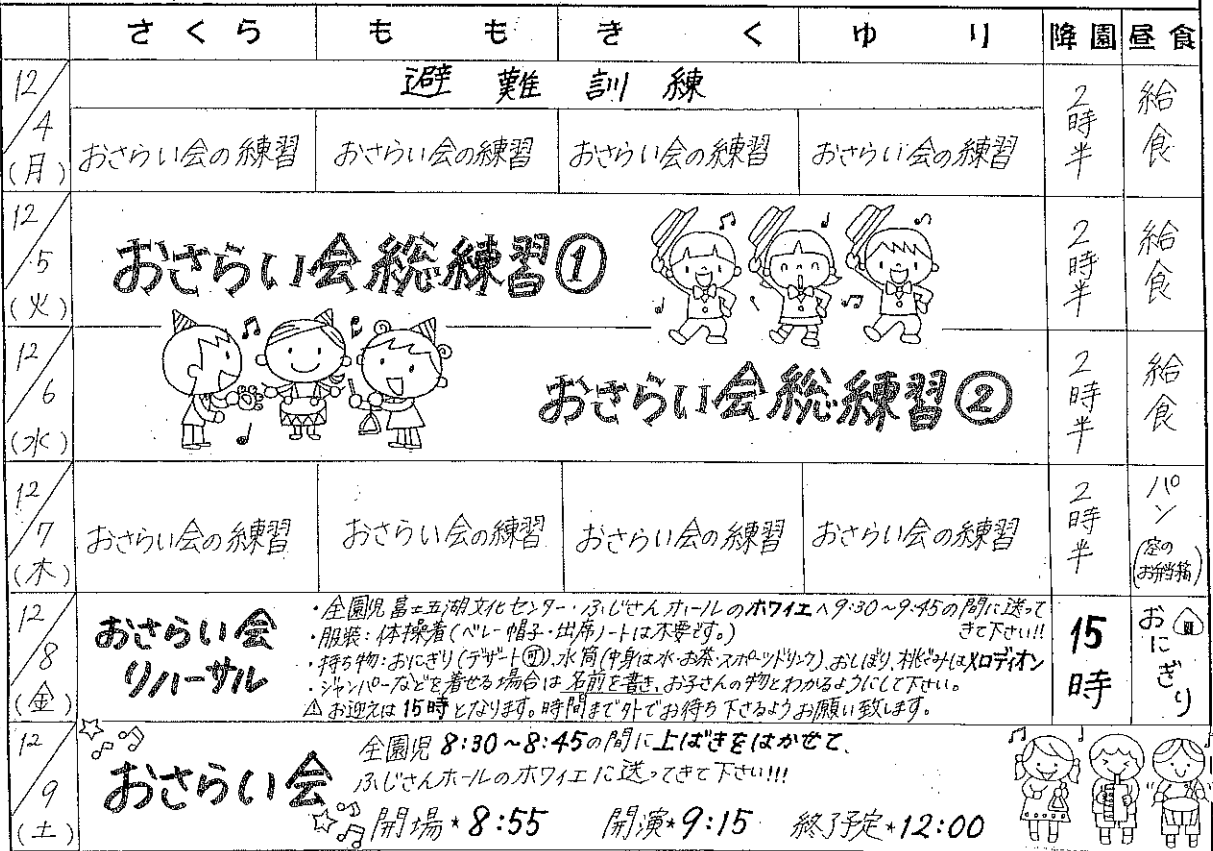 さくら もも きく ゆり 降園 昼食
12/4(月) 避難訓練 2時半 給食
おさらい会の練習 おさらい会の練習 おさらい会の練習 おさらい会の練習
12/5(火) おさらい会総練習① 2時半 給食
12/6(水) おさらい会総練習② 2時半 給食
12/7(木) おさらい会の練習 おさらい会の練習 おさらい会の練習 おさらい会の練習 2時半 パン(空のお弁当箱)
12/8(金) おさらい会リハーサル 15時 おにぎり
・全園児富士五湖文化センター・ふじさんホールのホワイエへ9:30~9:45の間に送って
きて下さい!!
・服装:体操着(ベレー帽子・出席ノートは不要です。)
・持ち物:おにぎり(デザート可)、水筒(中身は水・お茶・スポーツドリンク)、おしぼり、桃ぐみはメロディオン
・ジャンパーなどを着せる場合は名前を書き、お子さんの物とわかるようにして下さい。
△お迎えは15時となります。時間まで外でお待ち下さるようお願い致します。
12/9(土) おさらい会
全園児8:30~8:45の間に上ばきをはかせて、
ふじさんホールのホワイエに送ってきて下さい!!!
開場*8:55 開演*9:15 終了予定*12:00